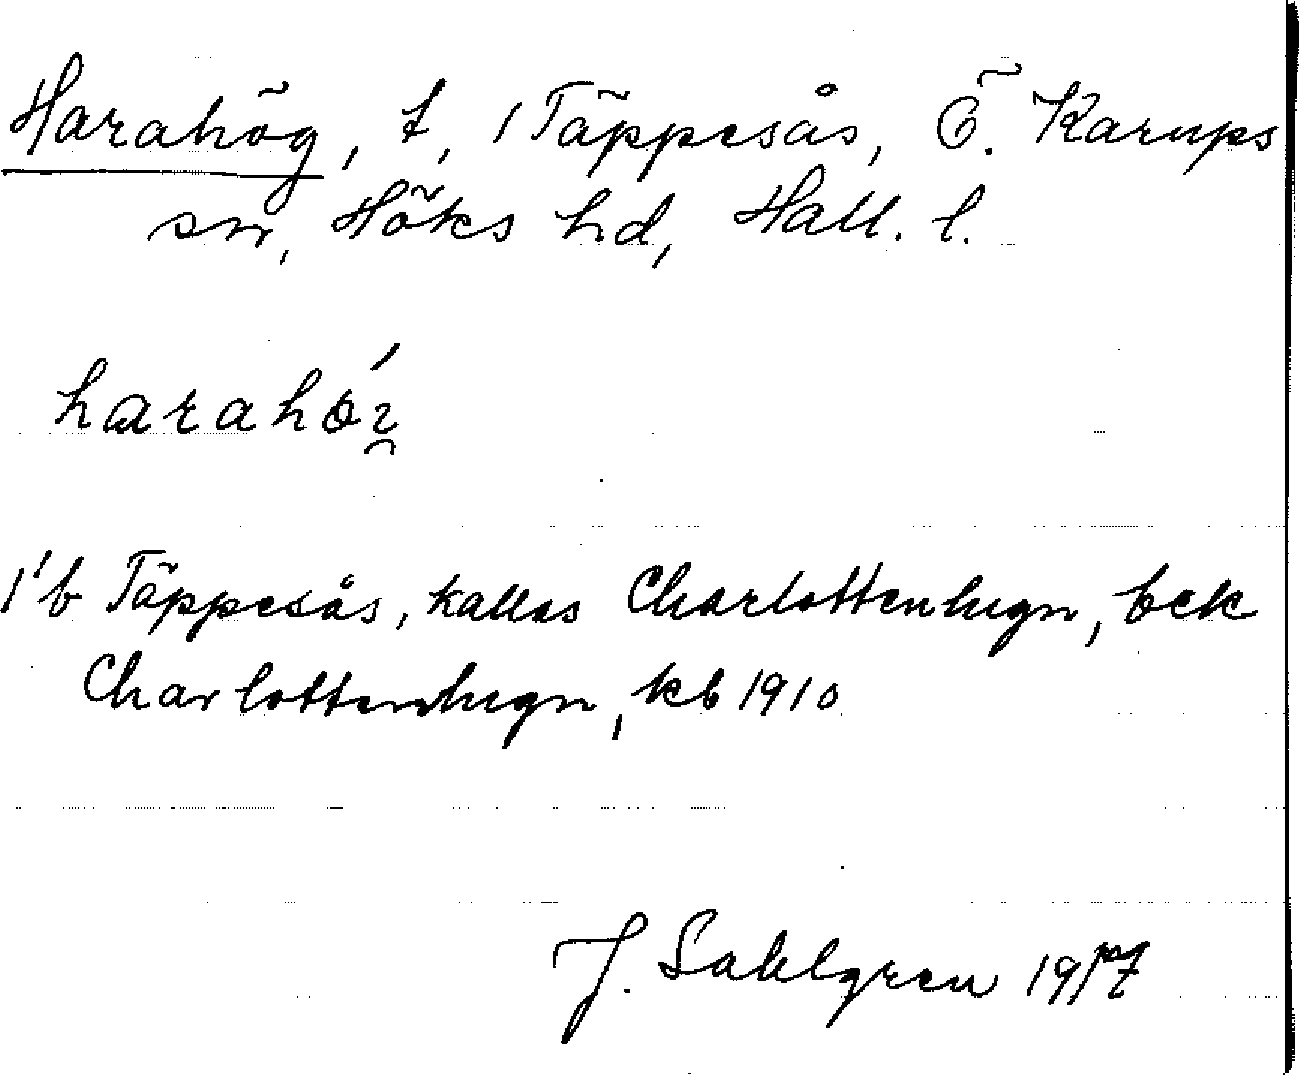 Harahög, t, 1 Täppesås, Ö. Karups
sn, Höks hd, Hall. l.
harahöi̯
1'b Täppesås, kallas Charlottenhegn, bek
Charlottenhegn, kb 1910
J. Sahlgren 1917